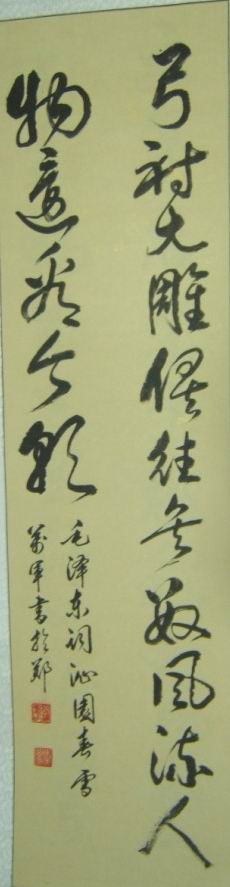 弓射大雕俱往矣数风流人
物還看今朝
毛泽东词沁園春雪
萬军書於郑